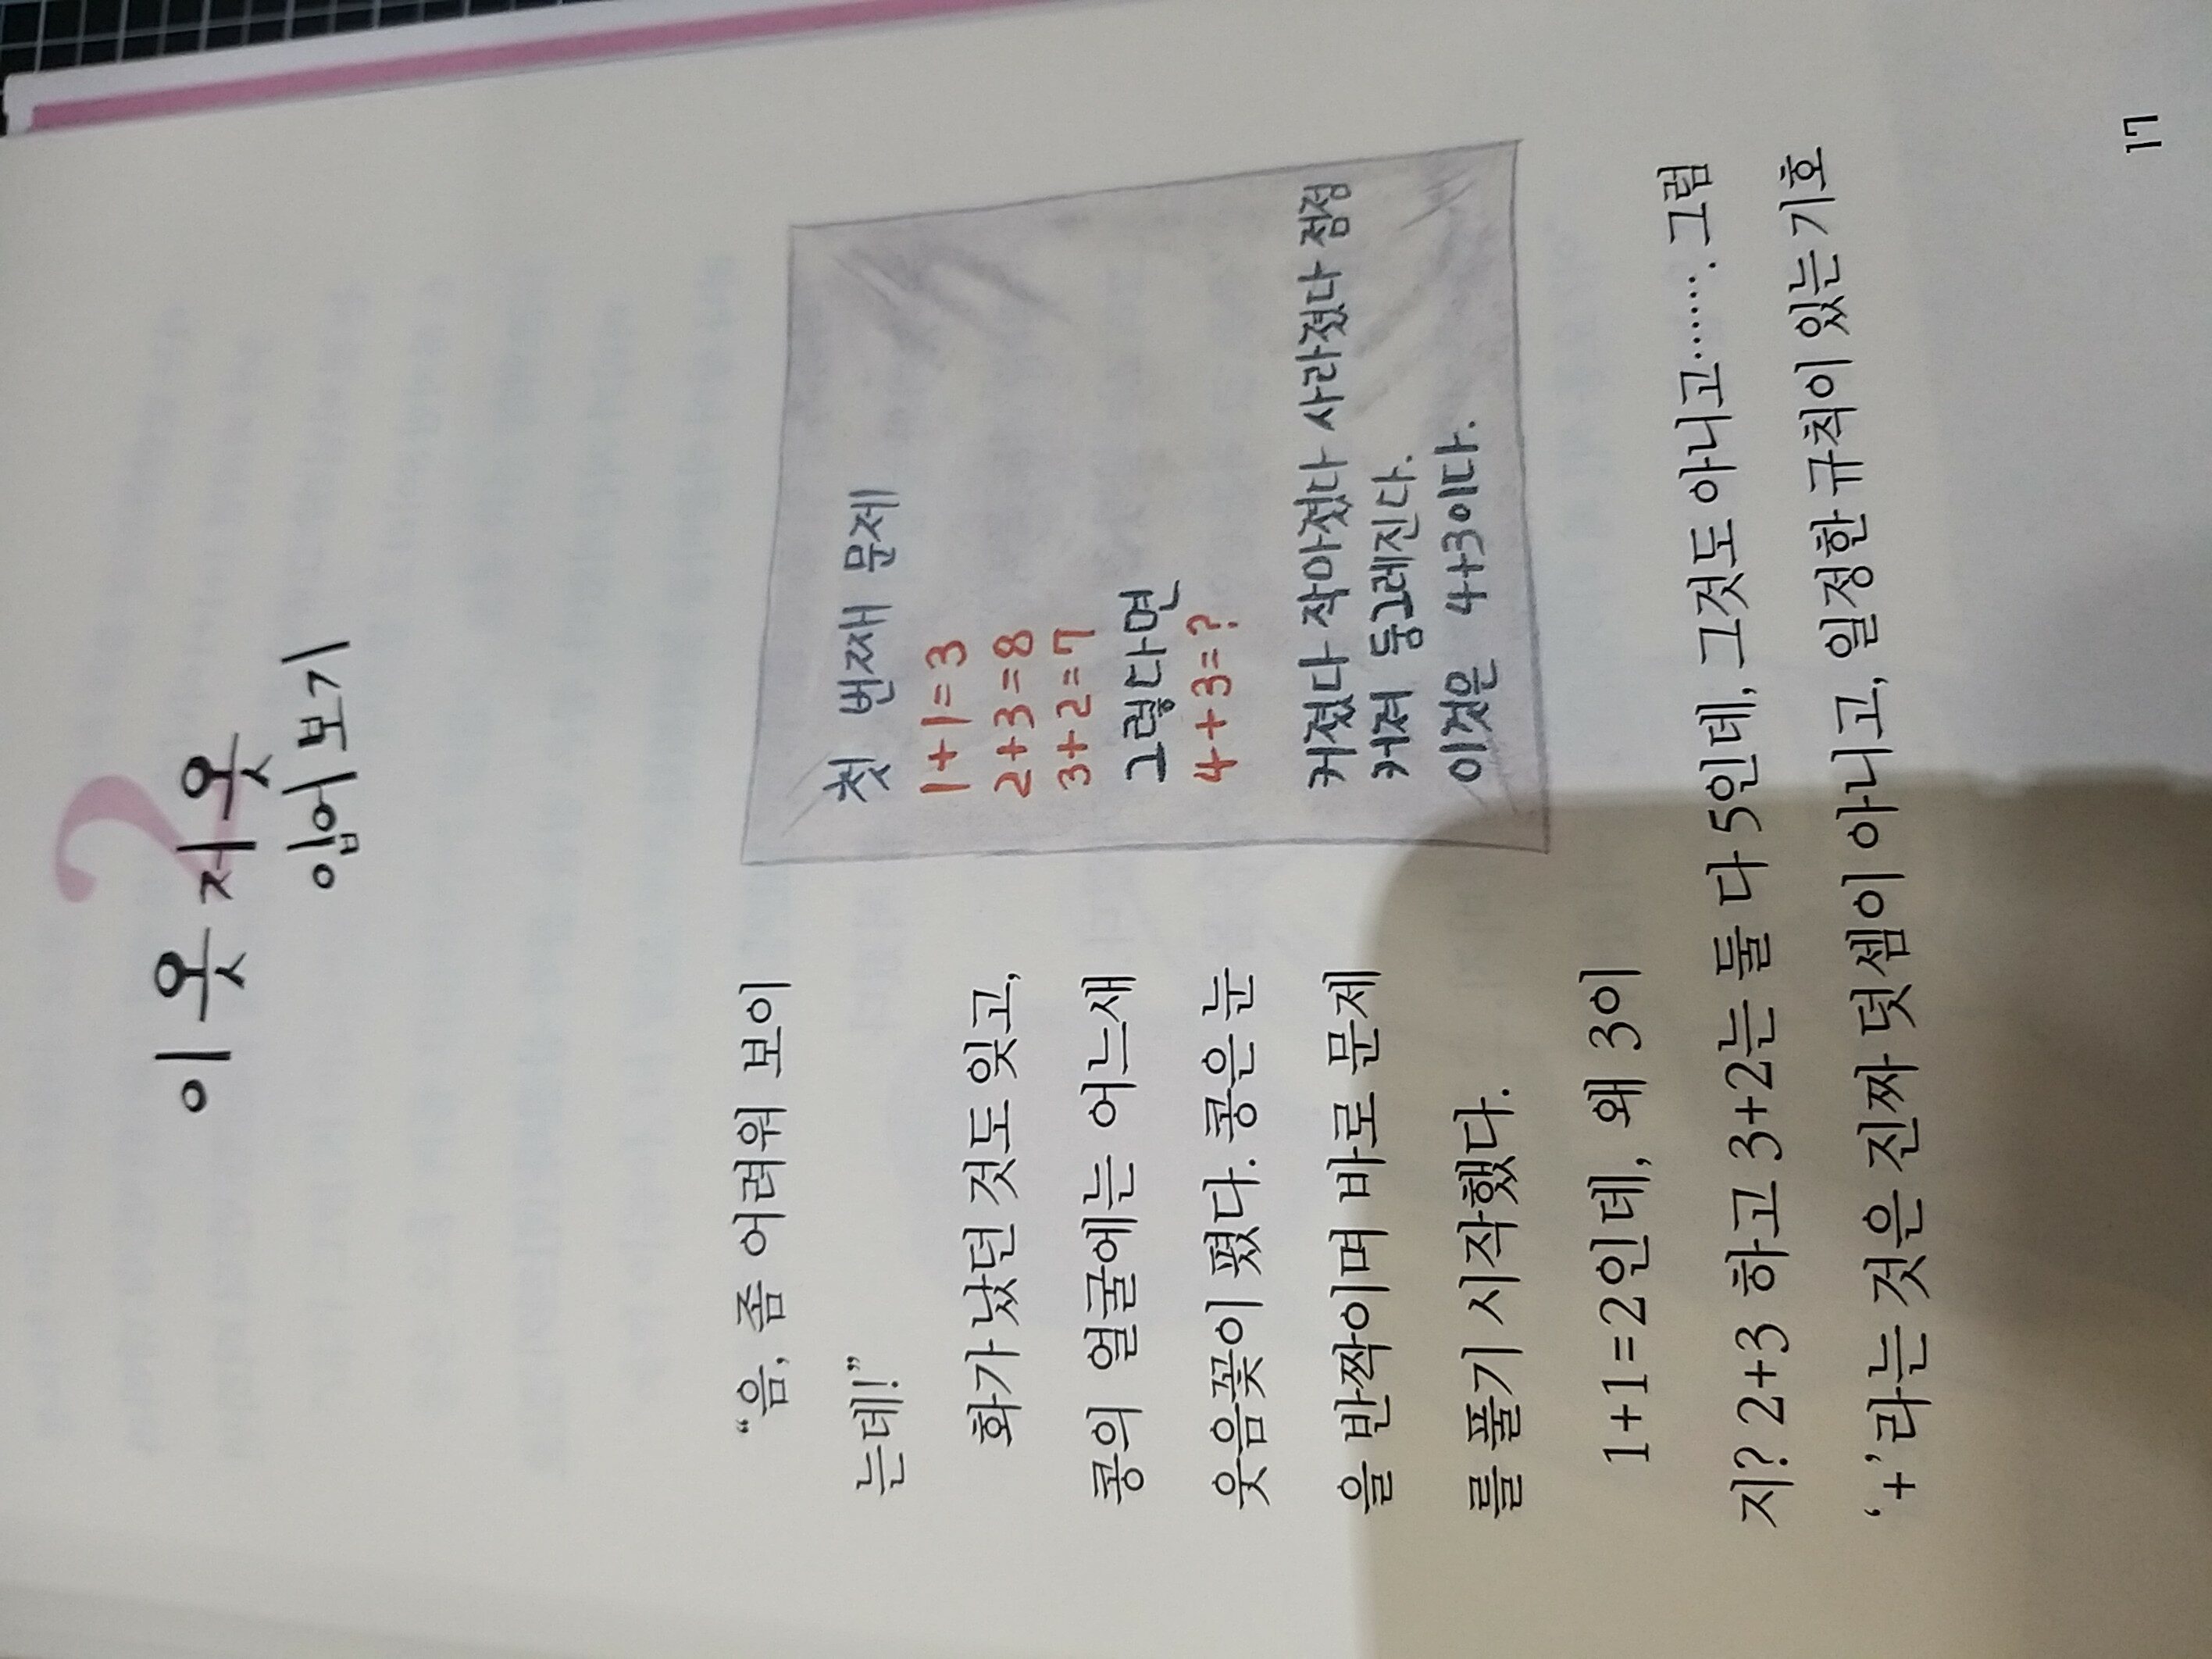 2
이 옷 저 옷
입어 보기
“음, 좀 어려워 보이
는데!”
화가 났던 것도 잊고,
콩의 얼굴에는 어느새
웃음꽃이 폈다. 콩은 눈
을 반짝이며 바로 문제
를 풀기 시작했다.
첫 번째 문제
1+1=3
2+3=8
3+2=7
그렇다면
4+3=?
커졌다 작아졌다 사라졌다 점점
커져 둥그레진다.
이것은 4+3이다.
1+1=2인데, 왜 3이
지? 2+3 하고 3+2는 둘 다 5인데, 그것도 아니고……. 그럼
‘+’라는 것은 진짜 덧셈이 아니고, 일정한 규칙이 있는 기호
17